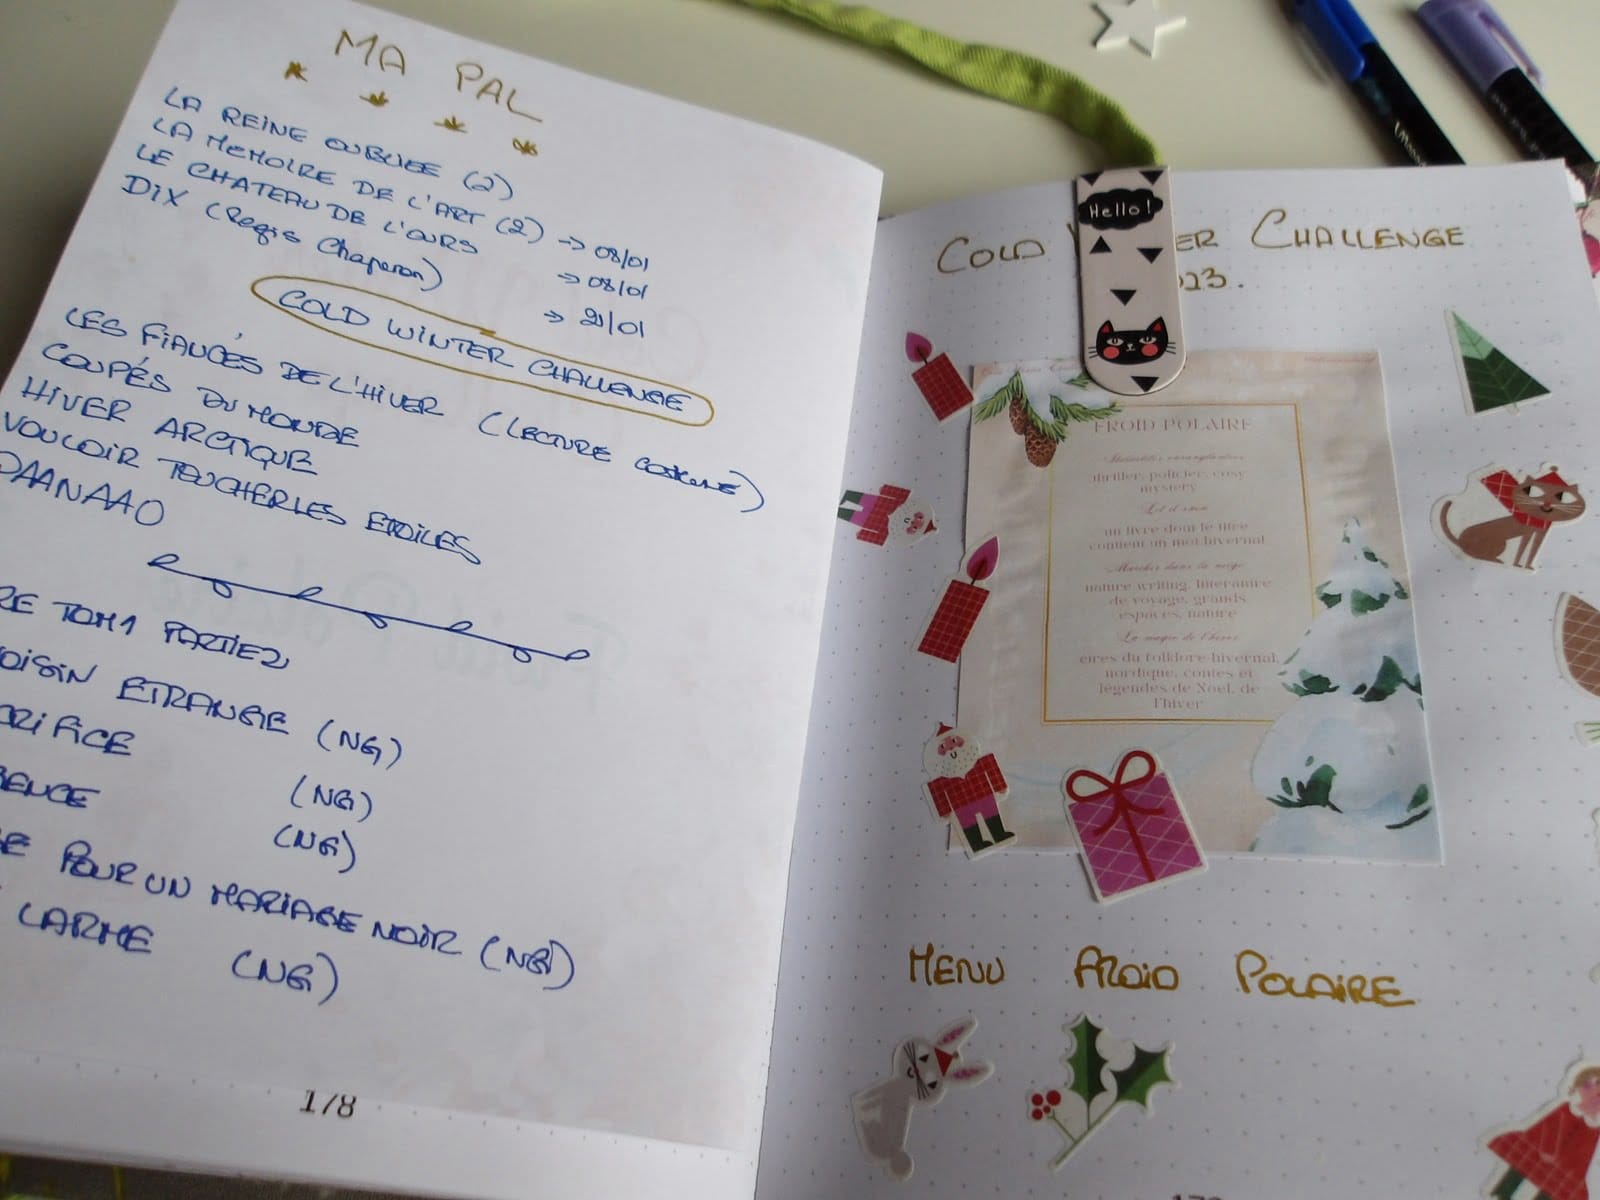 MA PAL
LA REINE OUBLIEE (2)
LA MEMOIRE DE L'ART (2) → 08/01
LE CHATEAU DE L'OURS → 08/01
DIX (Regis Chaperon) → 21/01
COLD WINTER CHALLENGE
LES FIANCÉS DE L'HIVER (LECTURE COMMUNE)
COUPÉS DU MONDE
HIVER ARCTIQUE
VOULOIR TOUCHER LES ETOILES
DAANAAO
RE TOM1 PARTIE2
OISIN ETRANGE (NG)
CRIFICE (NG)
(NG)
POUR UN MARIAGE NOIR (NG)
LARME (NG)
178
Hello!
COLD ER CHALLENGE
023.
FROID POLAIRE
thriller, policier, cosy
mystery
un livre dont le titre
contient un mot hivernal
Marcher dans la neige
nature writing, littérature
de voyage, grands
espaces, nature
La magie de l'hiver
ires du folklore hivernal,
nordique, contes et
légendes de Noel, de
l'hiver
MENU FROID POLAIRE